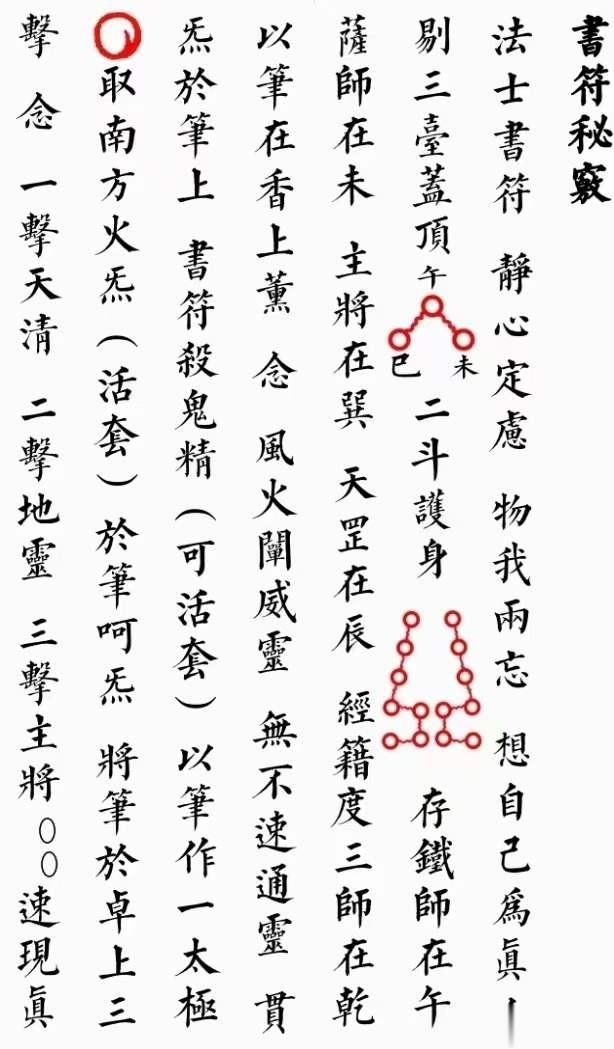 書符秘竅
法士書符 靜心定慮 物我兩忘 想自己為眞
剔三臺蓋頂 午 巳 未 二斗護身 存鐵師在午
薩師在未 主將在巽 天罡在辰 經籍度三師在乾
以筆在香上薰 念 風火闡威靈 無不速通靈 貫
炁於筆上 書符殺鬼精(可活套)以筆作一太極
取南方火炁(活套)於筆呵炁 將筆於卓上三
擊 念 一擊天清 二擊地靈 三擊主將○○速現眞